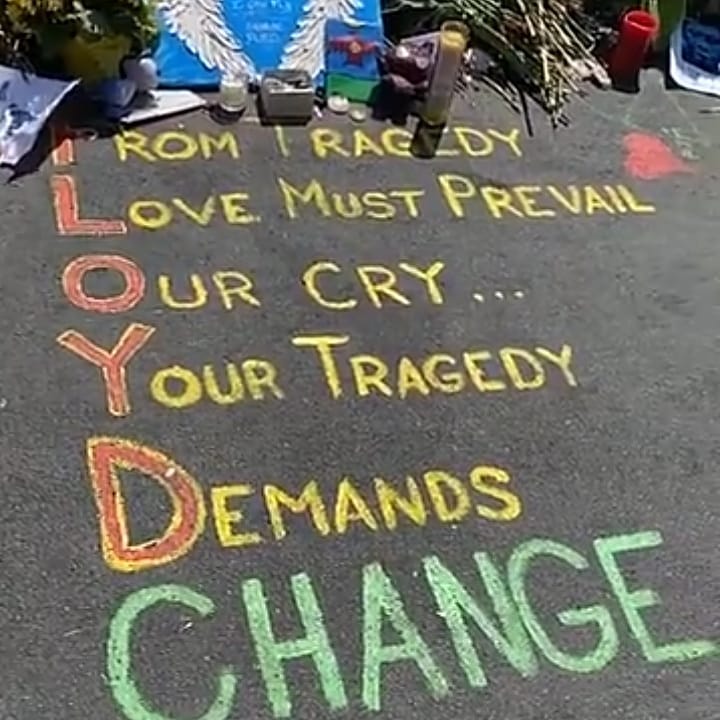 FROM TRAGEDY
LOVE MUST PREVAIL
OUR CRY...
YOUR TRAGEDY
DEMANDS
CHANGE